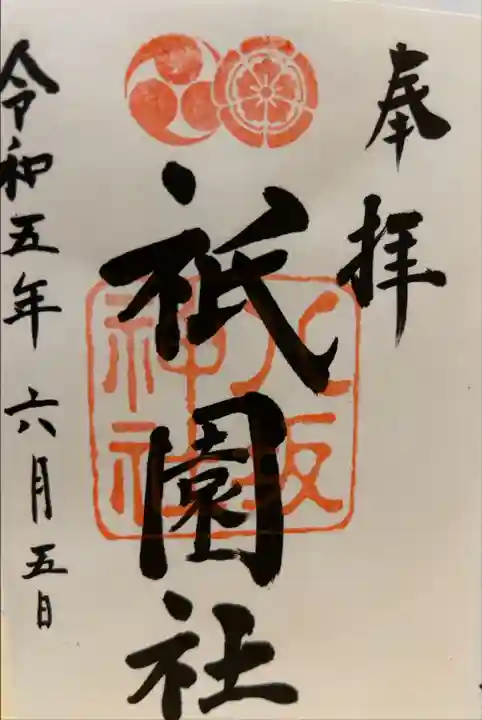 奉拝
祇園社
八坂
神社
令和五年六月五日